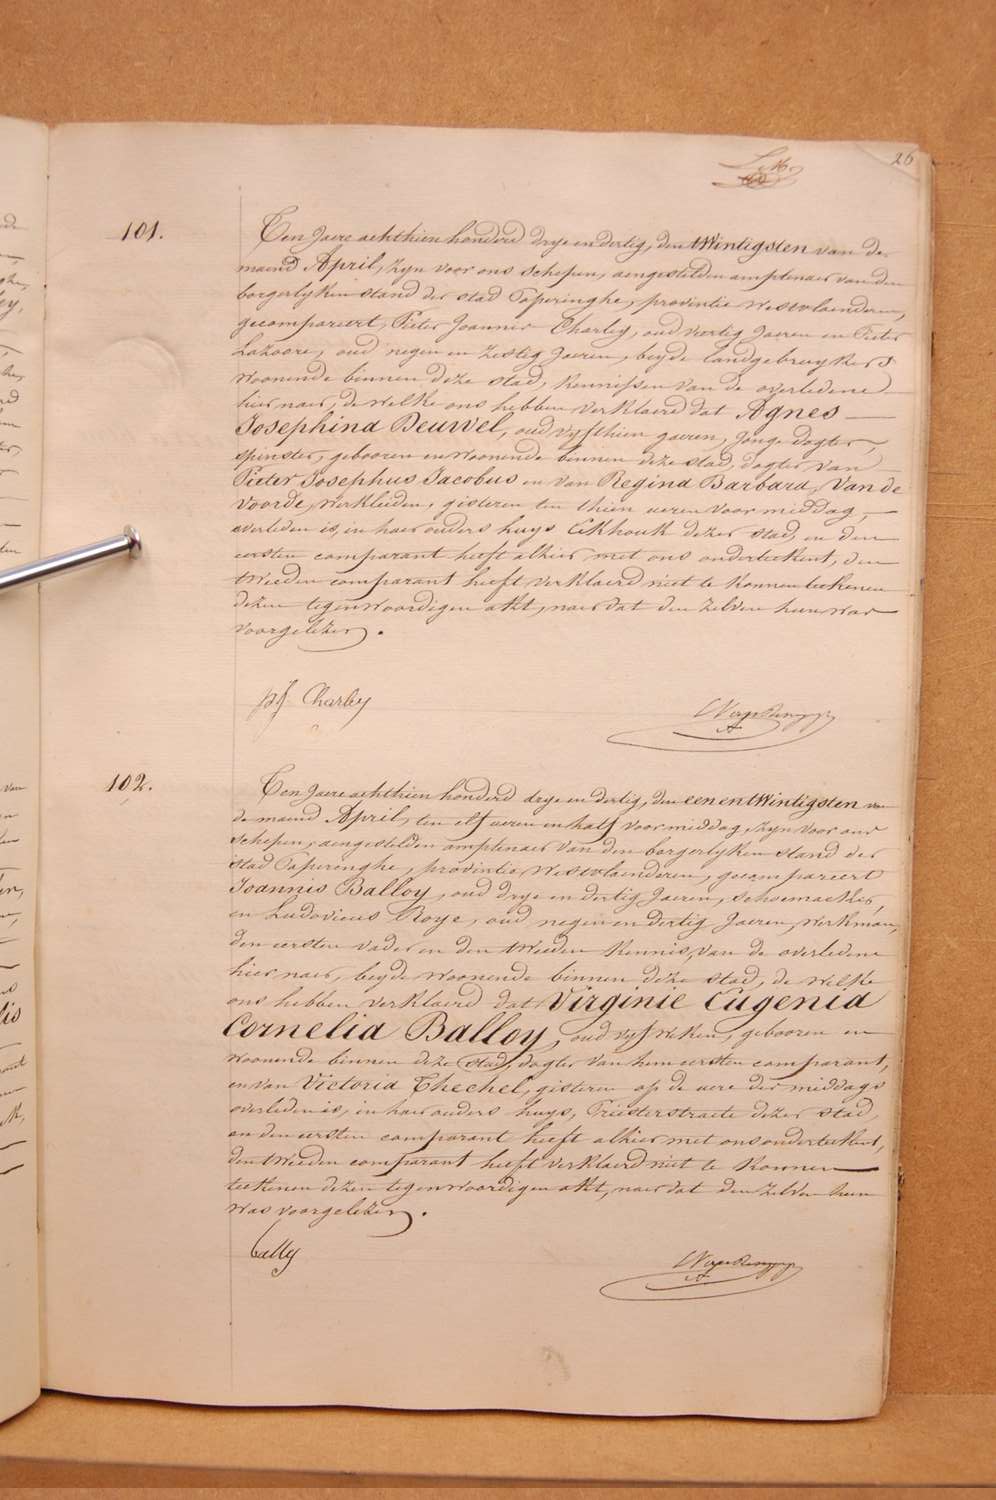 26
101.
Ten Jaere achthien honderd drye en dertig, den twintigsten van de
maend April, zyn voor ons schepen, aengestelden amptenaer van den
borgerlyken stand der stad Poperinghe, provintie Westvlaenderen,
gecompareert, Pieter Joannes Charley, oud veertig Jaeren en Pieter
Lazoore, oud negen en zestig Jaeren, beyde landgebruykers
woonende binnen deze stad, kennissen van de overledene
hier naer, de welke ons hebben verklaerd dat Agnes
Josephina Deuwel, oud vyfthien jaeren, Jonge dogter,
spinster, gebooren en woonende binnen deze stad, dogter van
Pieter Josephus Jacobus en van Regina Barbara Van de
Voorde, werklieden, gisteren ten thien ueren voor middag,
overleden is, in haer ouders huys Eekhoutk dezer stad, en den
eersten comparant heeft alhier met ons onderteekent, den
tweeden comparant heeft verklaerd niet te konnen teekenen
dezen tegenwoordigen akt, naer dat den zelven hun was
voorgelezen.
pj Charley
102.
Ten Jaere achthien honderd drye en dertig, den eenentwintigsten van
de maend April, ten elf ueren en half voor middag, zyn voor ons
schepen, aengestelden amptenaer van den borgerlyken stand der
stad Poperinghe, provintie Westvlaenderen, gecompareert
Joannis Balloy, oud drye en dertig Jaeren, schoemaeker,
en Ludovicus Roye, oud negen en dertig Jaeren, werkman,
den eersten vader en den tweeden kennis, van de overledene
hier naer, beyde woonende binnen deze stad, de welke
ons hebben verklaerd dat Virginie Eugenia
Cornelia Balloy, oud vyf weken, gebooren en
woonende binnen deze stad, dogter van hem eersten comparant,
en van Victoria Thechel, gisteren op de uere der middags
overleden is, in haer ouders huys, Priesterstraete dezer stad,
en den eersten comparant heeft alhier met ons onderteekent,
den tweeden comparant heeft verklaerd niet te konnen
teekenen dezen tegenwoordigen akt, naer dat den zelven hun
was voorgelezen.
bally